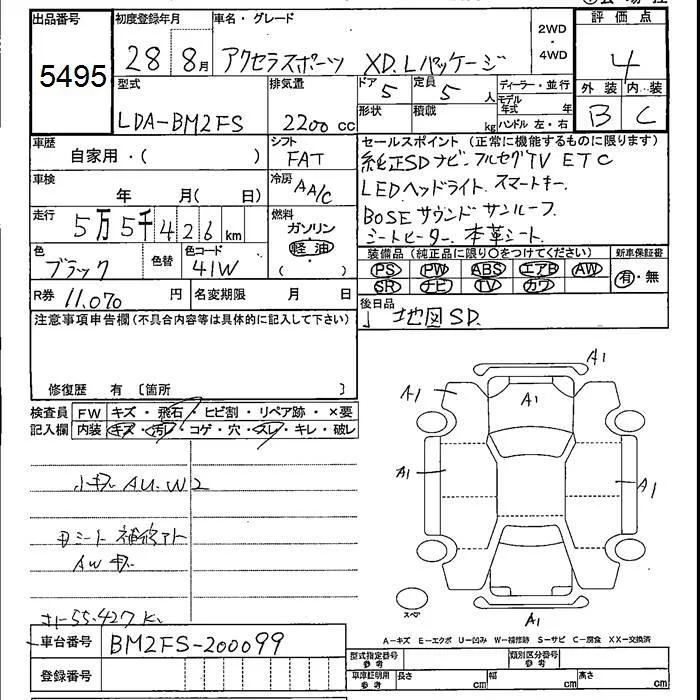 出品番号
5495
初度登録年月
28 8月
車名・グレード
アクセラスポーツ XD. Lパッケージ
2WD
・
4WD
評価点
4
型式
LDA-BM2FS
排気量
2200 cc
ドア
5
定員
5 人
形状
積載
kg
ディーラー・並行
モデル年式 年
ハンドル 左・右
外装 内装
B C
車歴
自家用・( )
シフト
FAT
車検
年 月( 日)
冷房
AA/C
走行
5万5千426 km
燃料
ガソリン
軽油
( )
色
ブラック
色替
色コード
41W
R券 11,070 円
名変期限 月 日
セールスポイント (正常に機能するものに限ります)
純正SDナビ. フルセグTV ETC
LEDヘッドライト. スマートキー.
BOSEサウンド サンルーフ.
シートヒーター. 本革シート.
装備品(純正品に限り〇をつけてください)
新車保証書
PS PW ABS エアB AW
SR ナビ TV カワ
有・無
後日品
地図SD.
注意事項申告欄(不具合内容等は具体的に記入して下さい)
修復歴 有 〔箇所 〕
検査員記入欄
FW キズ・飛石・ヒビ割・リペア跡・×要
内装 キズ・汚レ・コゲ・穴・スレ・キレ・破レ
A1
A1
A1
A1
A1
A1
A1
小キズ AU. W2
シート 補修アト
AWキズ
55.427K
スペア
A-キズ E-エクボ U-凹み W-補修跡 S-サビ C-腐食 XX-交換済
車台番号 BM2FS-200099
登録番号
型式指定番号
参考
類別区分番号
参考
車庫証明用
参考
長さ cm
幅 cm
高さ cm